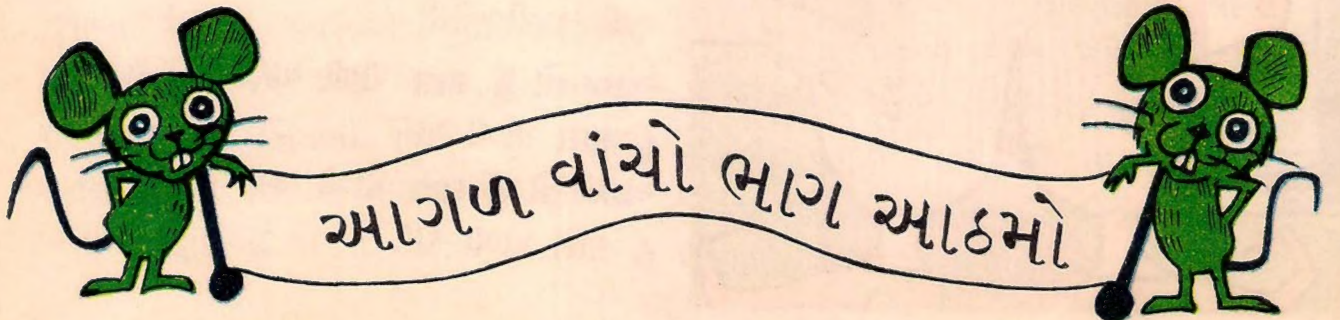 આગળ વાંચો ભાગ આઠમો